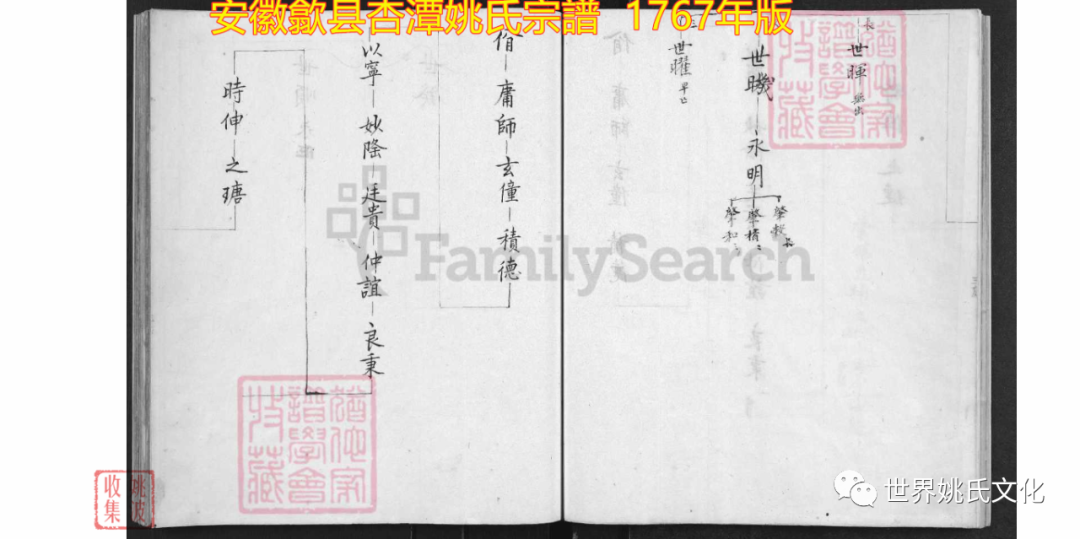 安徽歙县杏潭姚氏宗譜 1767年版
長
世暉 無出
世曦—永明
肇和
肇積
三
世曜 早亡
佾—庸師—玄僮—積德
以寧—妙隆—廷貴—仲誼—良秉
時伸—之瑭
FamilySearch
猶他家譜學會收藏
猶他家譜學會收藏
收集
世界姚氏文化